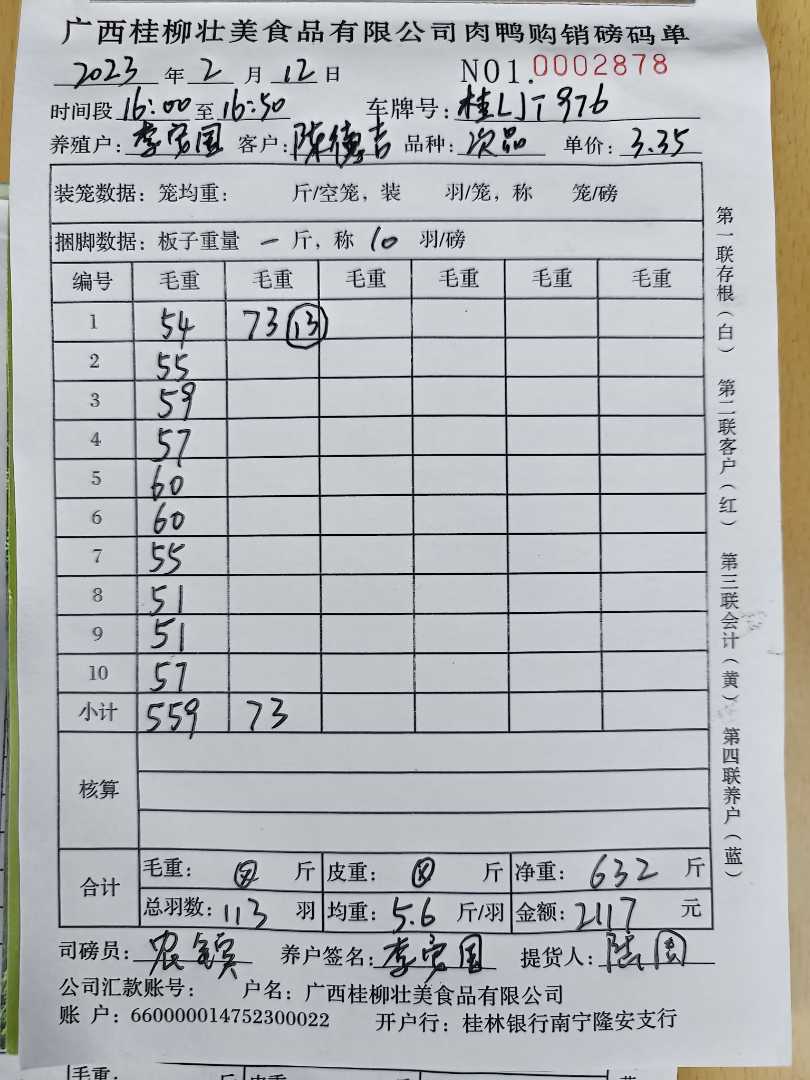 广西桂柳壮美食品有限公司肉鸭购销磅码单
2023年2月12日 NO1.0002878
时间段16:00至16:50 车牌号:桂LJT976
养殖户:李定国 客户:陈德吉 品种:次品 单价:3.35
装笼数据:笼均重: 斤/空笼,装 羽/笼,称 笼/磅
捆脚数据:板子重量 一 斤,称 10 羽/磅
编号 毛重 毛重 毛重 毛重 毛重 毛重
1 54 73 13
2 55
3 59
4 57
5 60
6 60
7 55
8 51
9 51
10 57
小计 559 73
核算
合计 毛重: 斤 皮重: 斤 净重:632斤
总羽数:113羽 均重:5.6斤/羽 金额:2117元
司磅员: 养户签名:李定国 提货人:
公司汇款账号: 户名:广西桂柳壮美食品有限公司
账 户:660000014752300022 开户行:桂林银行南宁隆安支行
第一联存根(白) 第二联客户(红) 第三联会计(黄) 第四联养户(蓝)
毛重: